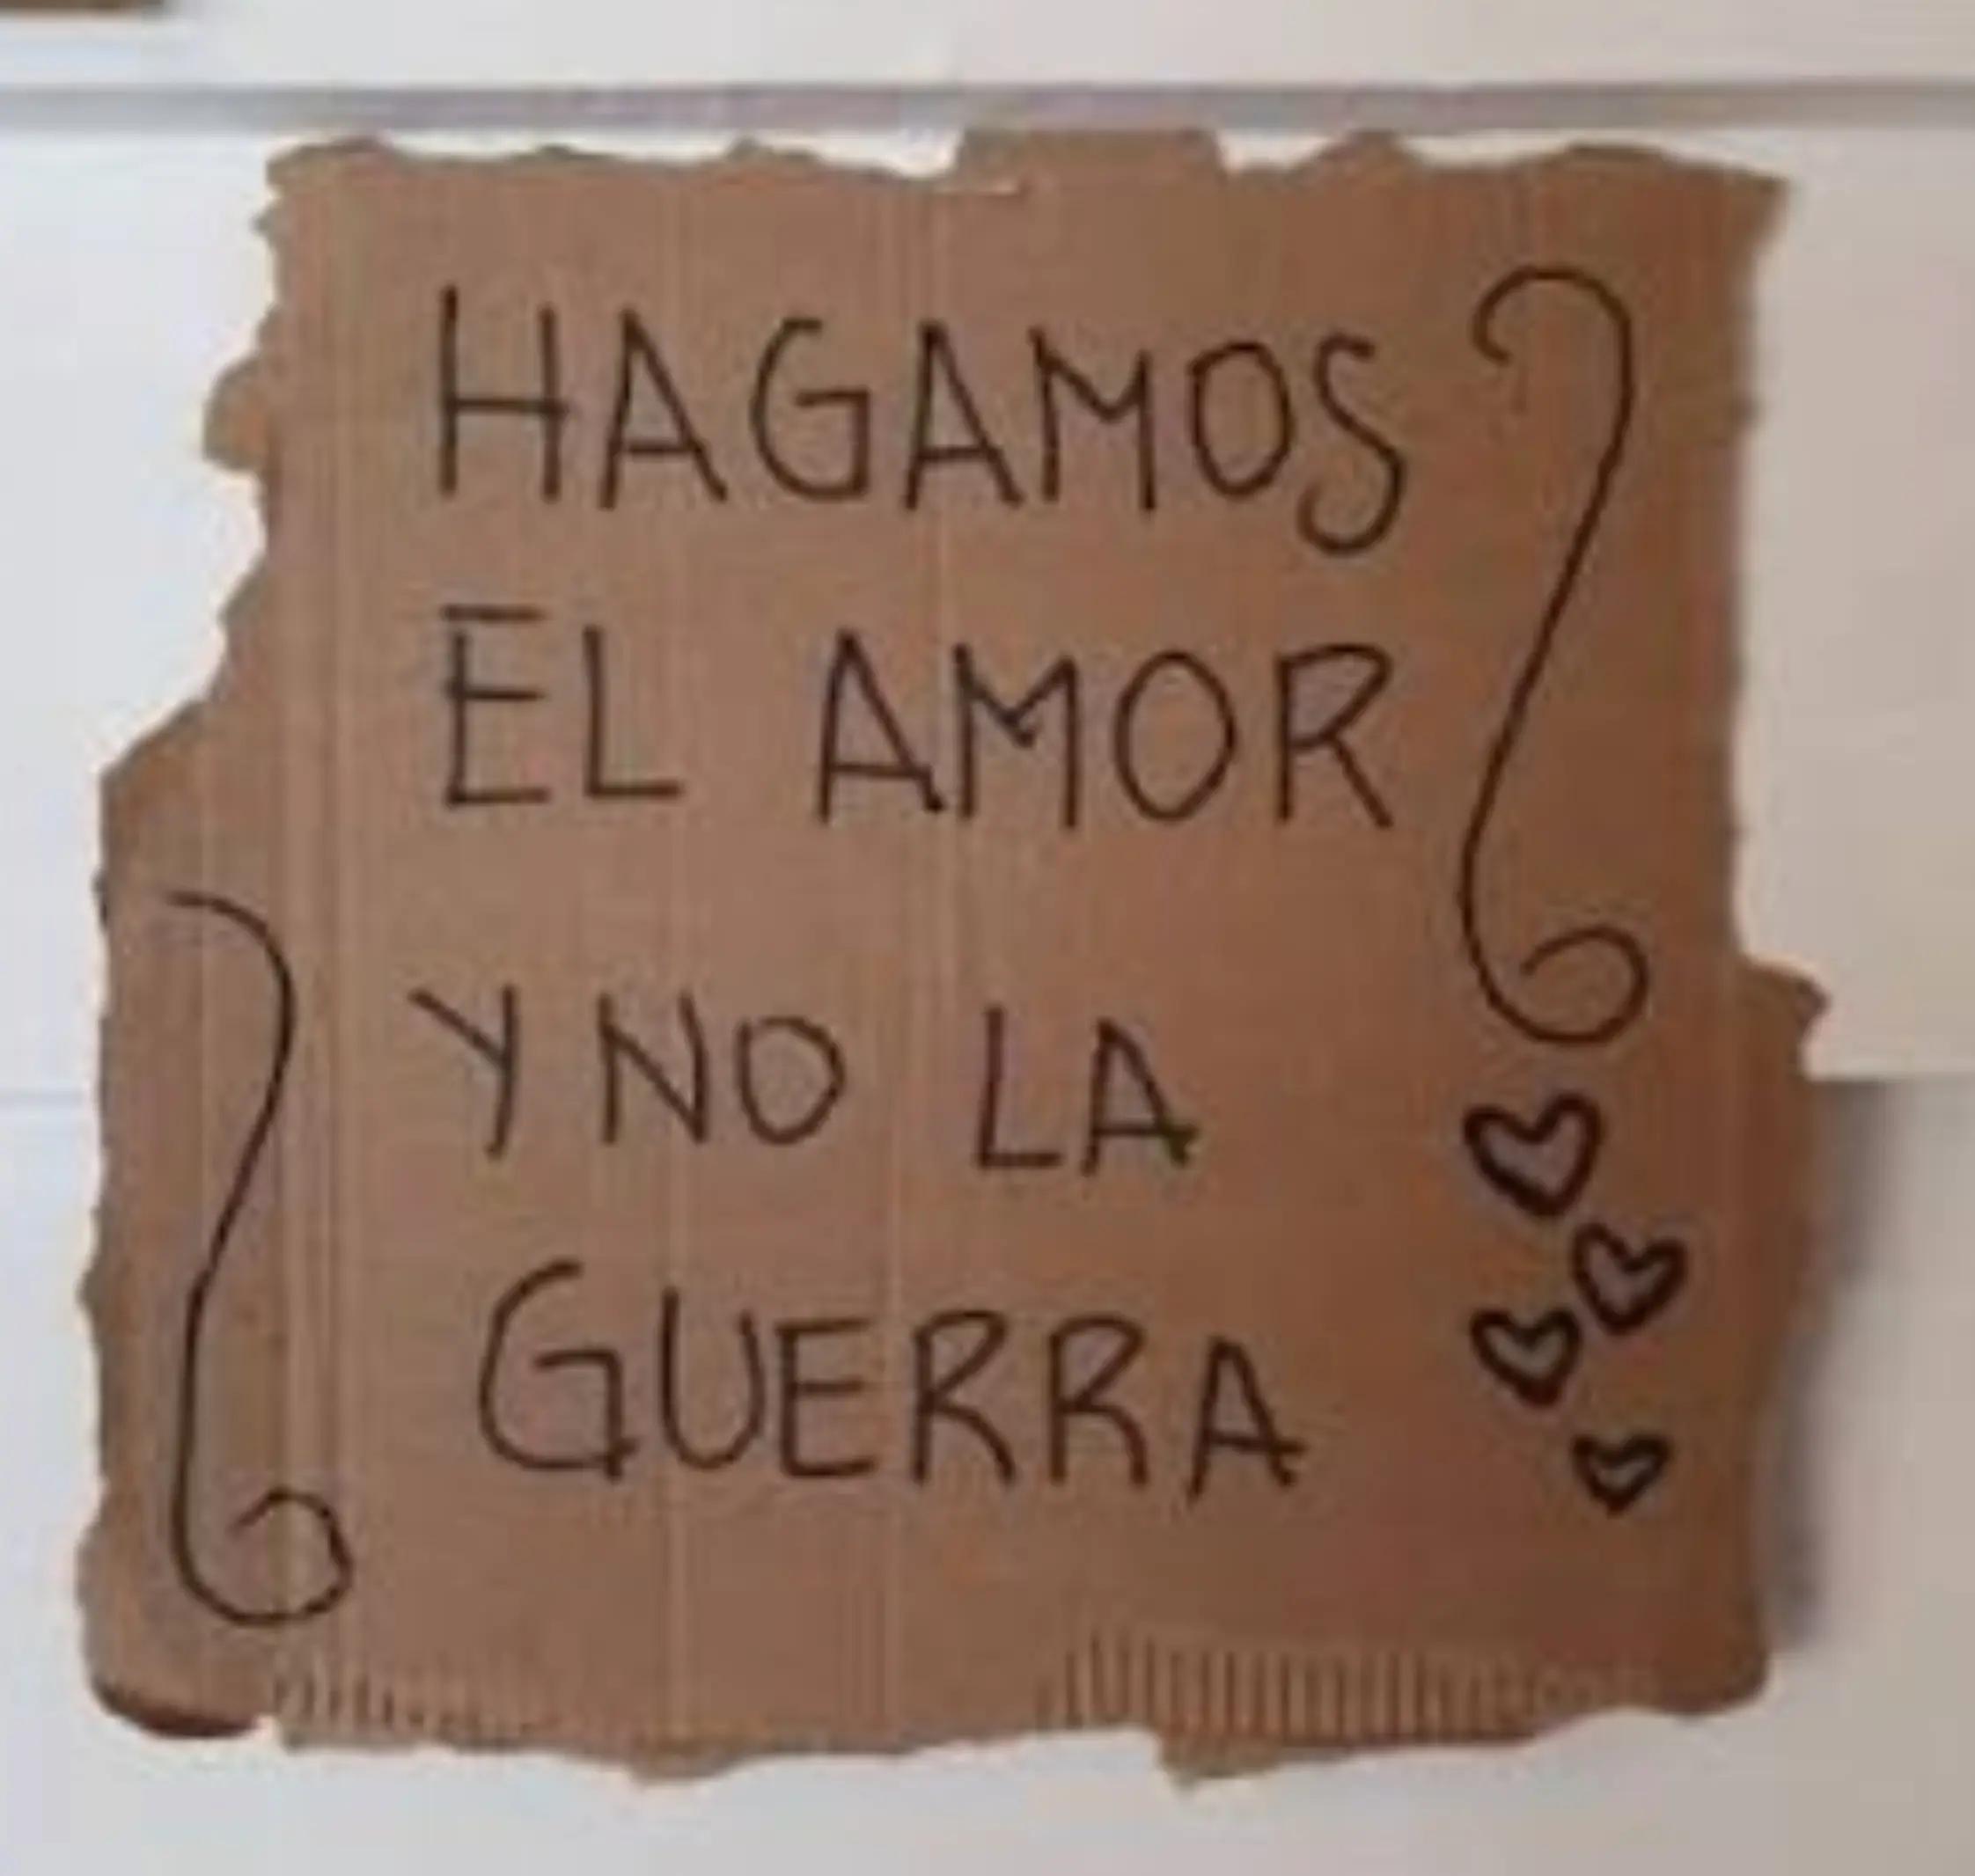 HAGAMOS
EL AMOR
Y NO LA
GUERRA